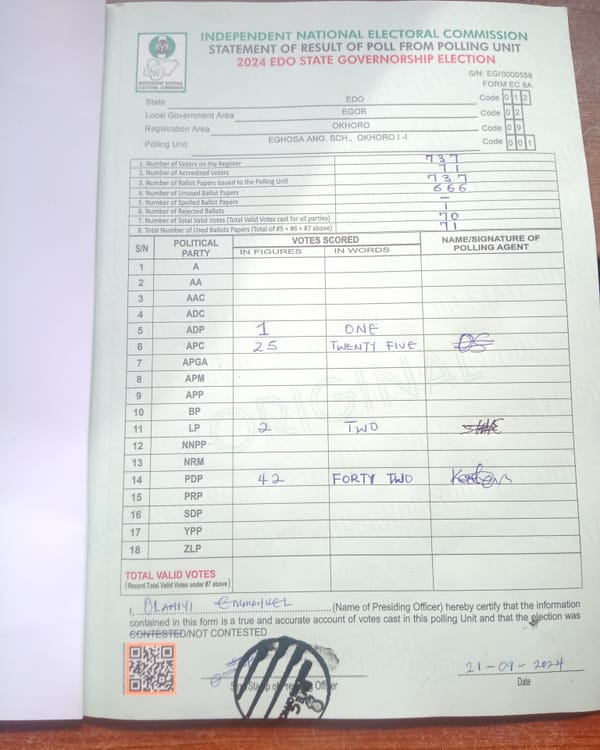 INDEPENDENT NATIONAL ELECTORAL COMMISSION
STATEMENT OF RESULT OF POLL FROM POLLING UNIT
2024 EDO STATE GOVERNORSHIP ELECTION
INDEPENDENT NATIONAL
ELECTORAL COMMISSION
S/N: EG/0000559
FORM EC 8A
State EDO Code 0 1 2
Local Government Area EGOR Code 0 2
Registration Area OKHORO Code 0 9
Polling Unit EGHOSA ANG. SCH., OKHORO I -I Code 0 0 1
1. Number of Voters on the Register 737
2. Number of Accredited Voters 71
3. Number of Ballot Papers Issued to the Polling Unit 737
4. Number of Unused Ballot Papers 666
5. Number of Spoiled Ballot Papers –
6. Number of Rejected Ballots 1
7. Number of Total Valid Votes (Total Valid Votes cast for all parties) 70
8. Total Number of Used Ballots Papers (Total of #5 + #6 + #7 above) 71
S/N POLITICAL PARTY VOTES SCORED NAME/SIGNATURE OF POLLING AGENT
IN FIGURES IN WORDS
1 A
2 AA
3 AAC
4 ADC
5 ADP 1 ONE
6 APC 25 TWENTY FIVE
7 APGA
8 APM
9 APP
10 BP
11 LP 2 TWO
12 NNPP
13 NRM
14 PDP 42 FORTY TWO
15 PRP
16 SDP
17 YPP
18 ZLP
ORIGINAL
TOTAL VALID VOTES
(Record Total Valid Votes under #7 above)
I, OLANIYI EMMANUEL (Name of Presiding Officer) hereby certify that the information
contained in this form is a true and accurate account of votes cast in this polling Unit and that the election was
CONTESTED/NOT CONTESTED
21-09-2024
Date